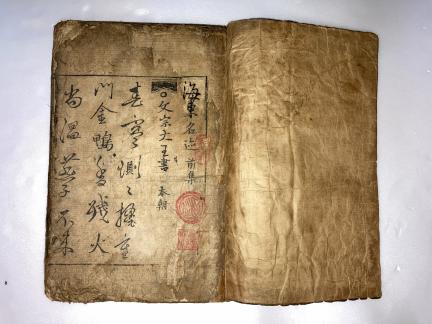 海東名迹 前集
○文宗大王書 本朝
春寒惻〻掩重
門金鴨香殘火
尚温燕子不来